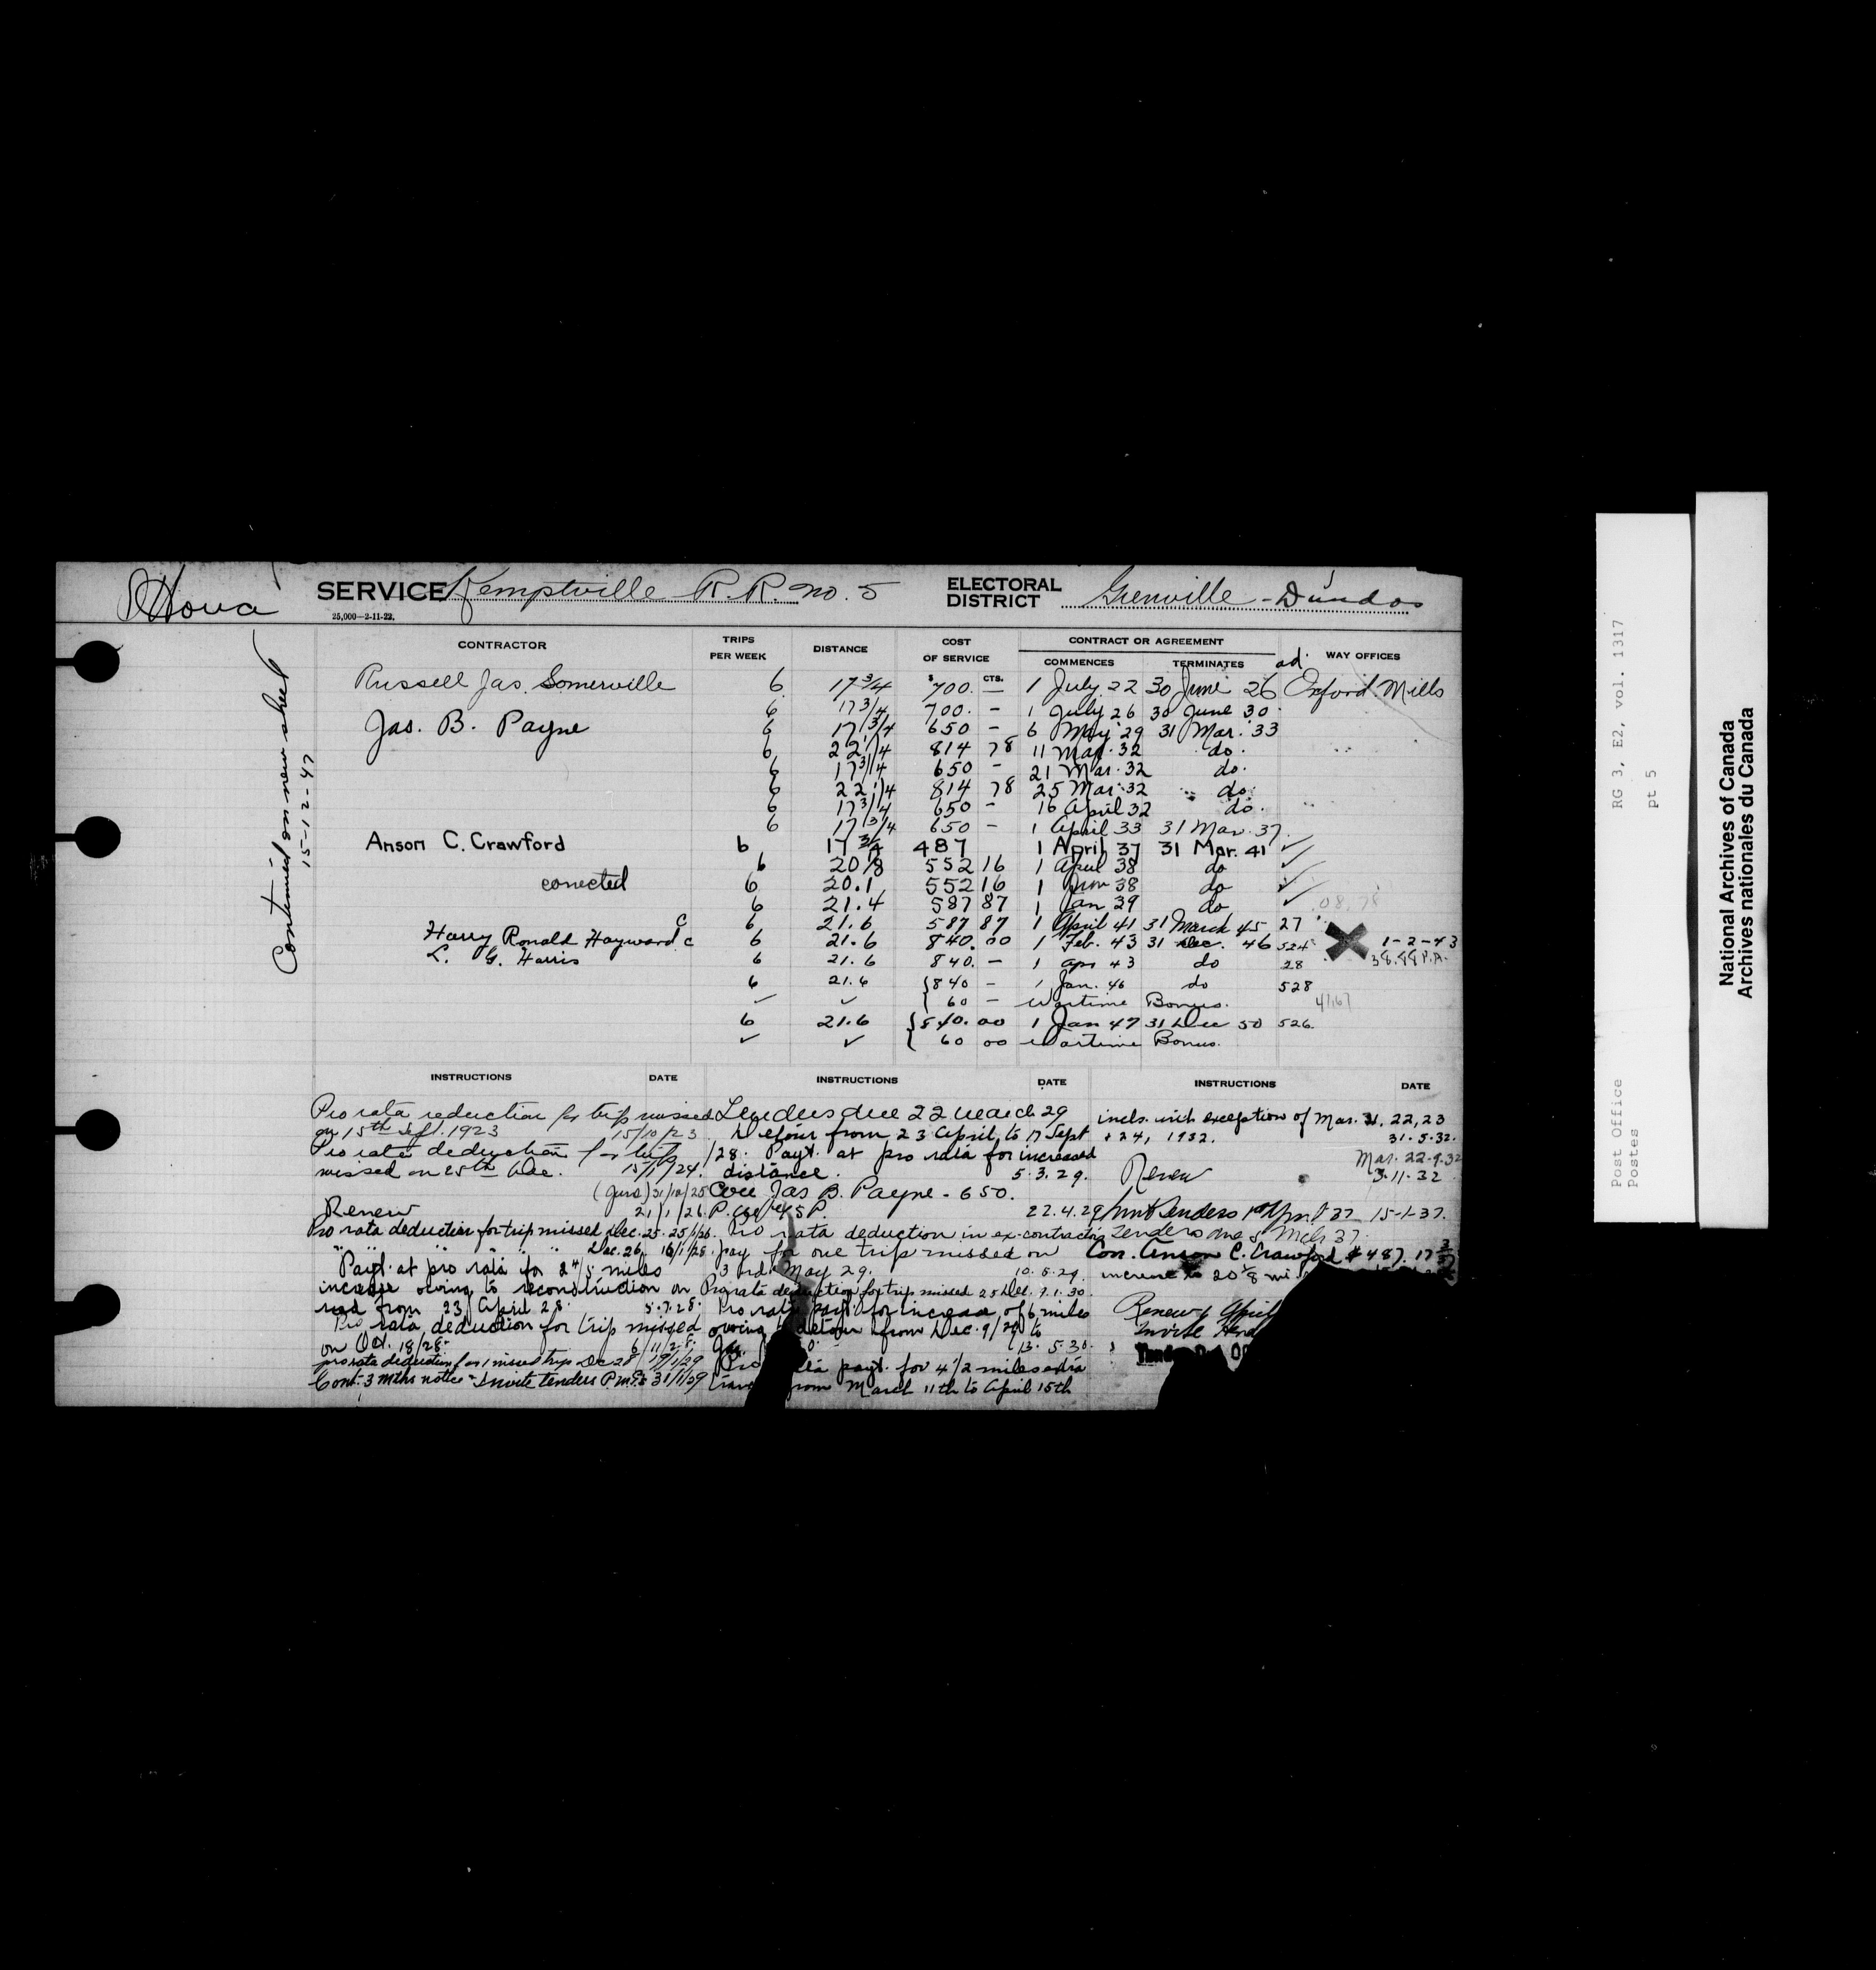 Ottawa
SERVICE Kemptville R.R. no. 5
ELECTORAL DISTRICT Grenville - Dundas
25,000—2-11-22.
Continued on new sheet
15-12-47
CONTRACTOR TRIPS PER WEEK DISTANCE COST OF SERVICE CONTRACT OR AGREEMENT WAY OFFICES
$ CTS. COMMENCES TERMINATES
Russell Jas. Somerville 6 17 3/4 700. — 1 July 22 30 June 26 ad. Oxford Mills
6 17 3/4 700. - 1 July 26 30 June 30
Jas. B. Payne 6 17 3/4 650 - 6 May 29 31 Mar. 33
6 22 1/4 814 78 11 Mar. 32 do.
6 17 3/4 650 - 21 Mar. 32 do.
6 22 1/4 814 78 25 Mar. 32 do.
6 17 3/4 650 - 16 April 32 do.
6 17 3/4 650 - 1 April 33 31 Mar. 37.
Anson C. Crawford 6 17 3/4 487 1 April 37 31 Mar. 41 ✓
6 20 1/8 552 16 1 April 38 do ✓
corrected 6 20.1 552 16 1 38 do ✓
6 21.4 587 87 1 Jan 39 do ✓
c 6 21.6 587 87 1 April 41 31 March 45 27
Harry Ronald Hayward. c 6 21.6 840.00 1 Feb. 43 31 Dec. 46 524 1-2-43
L. G. Harris 6 21.6 840. — 1 apr 43 do 28 38.88 P.A.
6 21.6 { 840 — 1 Jan. 46 do 528
✓ ✓ { 60 — Wartime Bonus. 47.67
6 21.6 { 840.00 1 Jan 47 31 Dec 50 526.
✓ ✓ { 60 00 Wartime Bonus.
INSTRUCTIONS DATE
Pro rata reduction for trip missed
on 15th Sept. 1923 15/10/23
Pro rata deduction for trip
missed on 25th Dec. 15/1/24.
31/10/25
Renew 21/1/26.
Pro rata deduction for trip missed Dec. 25. 25/1/26.
" " " " " " Dec. 26. 18/1/28.
Payt. at pro rata for 2 4/5 miles
increase owing to reconstruction on
road from 23 April 28. 5.7.28.
Pro rata deduction for trip missed
on Oct. 18/28. 6/11/28.
pro rata deduction for 1 missed trip Dec 28 17/1/29
Cont. 3 mths notice - Invite tenders 31/1/29
INSTRUCTIONS DATE
Tenders due 22 March 29
Detour from 23 April to 17 Sept
/28. Payt. at pro rata for increased
distance. 5.3.29.
Jas B. Payne - 650.
22.4.29
Pro rata deduction in ex-contractor's
pay for one trip missed on
3rd May 29. 10.5.29.
Pro rata deduction for trip missed 25 Dec. 9.1.30.
Pro rata payt. for increase of 6 miles
owing to detour from Dec. 9/29 to
13.5.30.
Pro payt. for 4 1/2 miles extra
from March 11th to April 15th
INSTRUCTIONS DATE
incls. with exception of Mar. 21, 22, 23
+ 24, 1932. 31.5.32.
Mar. 22.9.32
Renew 3.11.32
Invt Tenders 1st April 37 15-1-37.
Tenders due 5 Mch 37.
Con. Anson C. Crawford $487. 17 3/4
increase to 20 1/8 mi
Renew April
Invite
RG 3, E2, vol. 1317
pt 5
Post Office
Postes
National Archives of Canada
Archives nationales du Canada